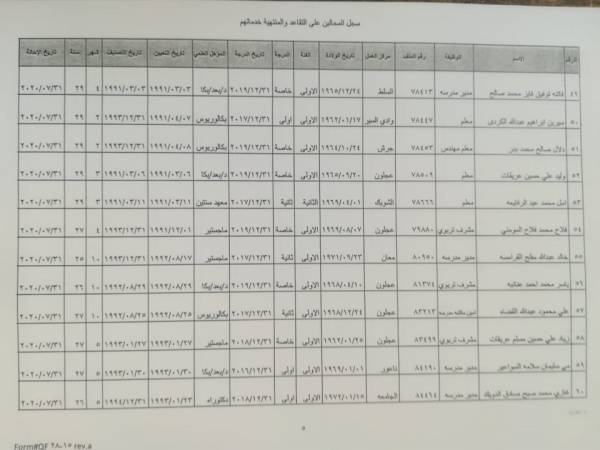 سجل المحالين على التقاعد والمنتهية خدماتهم
الرقم الاسم الوظيفة رقم الملف مركز العمل تاريخ الولادة الفئة الدرجة تاريخ الدرجة المؤهل العلمي تاريخ التعيين تاريخ التصنيف شهر سنة تاريخ الاحالة
٤٩ فاتنه توفيق فايز محمد صالح مدير مدرسه ٧٨٤١٣ السلط ١٩٦٥/١٢/٢٤ الاولى خاصة ٢٠١٩/١٢/٣١ د/بعد/بكا ١٩٩١/٠٣/٠٣ ١٩٩١/٠٣/٠٣ ٤ ٢٩ ٢٠٢٠/٠٧/٣١
٥٠ سيرين ابراهيم عبدالله الكردى معلم ٧٨٤٤٧ وادي السير ١٩٦٢/٠١/١٧ الاولى اولى ٢٠١٧/١٢/٣١ بكالوريوس ١٩٩١/٠٤/٠٧ ١٩٩٣/١٢/٣١ ٢ ٢٩ ٢٠٢٠/٠٧/٣١
٥١ دلال صالح محمد بدر معلم مهندس ٧٨٤٥٣ جرش ١٩٦٤/١٠/٢٤ الاولى خاصة ٢٠١٩/١٢/٣١ بكالوريوس ١٩٩١/٠٤/٠٨ ١٩٩٢/١٢/٣١ ٢ ٢٩ ٢٠٢٠/٠٧/٣١
٥٢ وليد علي حسين عريقات معلم ٧٨٥٠٩ عجلون ١٩٦٥/٠٩/٢٠ الاولى خاصة ٢٠١٩/١٢/٣١ د/بعد/بكا ١٩٩١/٠٣/٠٦ ١٩٩١/٠٣/٠٦ ٣ ٢٩ ٢٠٢٠/٠٧/٣١
٥٣ امل محمد عبد الرفايعه معلم ٧٨٦٦٦ الشوبك ١٩٦٩/٠٤/٠١ الثانية ثانية ٢٠١٧/١٢/٣١ معهد سنتين ١٩٩١/٠٣/١١ ١٩٩١/٠٣/١١ ٣ ٢٩ ٢٠٢٠/٠٧/٣١
٥٤ فلاح محمد فلاح المومني مشرف تربوي ٧٩٨٨٠ عجلون ١٩٦٩/٠٨/٠٧ الاولى خاصة ٢٠١٩/١٢/٣١ ماجستير ١٩٩١/١٢/٠١ ١٩٩٣/١٢/٣١ ٤ ٢٧ ٢٠٢٠/٠٧/٣١
٥٥ خالد عبدالله مفلح مدير مدرسه ٨٠٩٥٠ معان ١٩٧١/٠٩/٢٣ الاولى ثانية ٢٠١٧/١٢/٣١ ماجستير ١٩٩٢/٠٨/١٧ ١٩٩٣/١٢/٣١ ١٠ ٢٥ ٢٠٢٠/٠٧/٣١
٥٦ ياسر محمد احمد عنانبه مشرف تربوي ٨١٣٧٤ عجلون ١٩٦٨/٠٤/١٠ الاولى خاصة ٢٠١٩/١٢/٣١ د/بعد/بكا ١٩٩٢/٠٨/٢٩ ١٩٩٢/٠٨/٢٩ ١٠ ٢٦ ٢٠٢٠/٠٧/٣١
٥٧ علي محمود عبدالله القضاه امين مكتبه مدرسه ٨٣٢١٢ عجلون ١٩٦٨/١٢/٢٤ الاولى ثانية ٢٠١٧/١٢/٣١ بكالوريوس ١٩٩٢/٠٨/٢٥ ١٩٩٢/٠٨/٢٥ ١٠ ٢٧ ٢٠٢٠/٠٧/٣١
٥٨ زياد علي حسين مسلم عريقات مشرف تربوي ٨٣٤٩٩ عجلون ١٩٦٢/٠١/٢٢ الاولى خاصة ٢٠١٨/١٢/٣١ ماجستير ١٩٩٣/٠١/٢٧ ١٩٩٣/٠١/٢٧ ٥ ٢٧ ٢٠٢٠/٠٧/٣١
٥٩ مي سليمان سلامه السواعير مدير مدرسه ٨٤١٩٠ ناعور ١٩٦٩/٠١/٠١ الاولى اولى ٢٠١٦/١٢/٣١ د/بعد/بكا ١٩٩٣/٠١/٣٠ ١٩٩٣/٠١/٣٠ ٥ ٢٧ ٢٠٢٠/٠٧/٣١
٦٠ فخري محمد صبح صادق الدويك مدير مدرسه ٨٤٤٦٤ الجامعه ١٩٧٢/٠١/١٥ الاولى اولى ٢٠١٨/١٢/٣١ دكتوراه ١٩٩٣/٠١/٢٣ ١٩٩٤/١٢/٣١ ٥ ٢٦ ٢٠٢٠/٠٧/٣١
٥
Form#QF ٢٨-١٥ rev.a